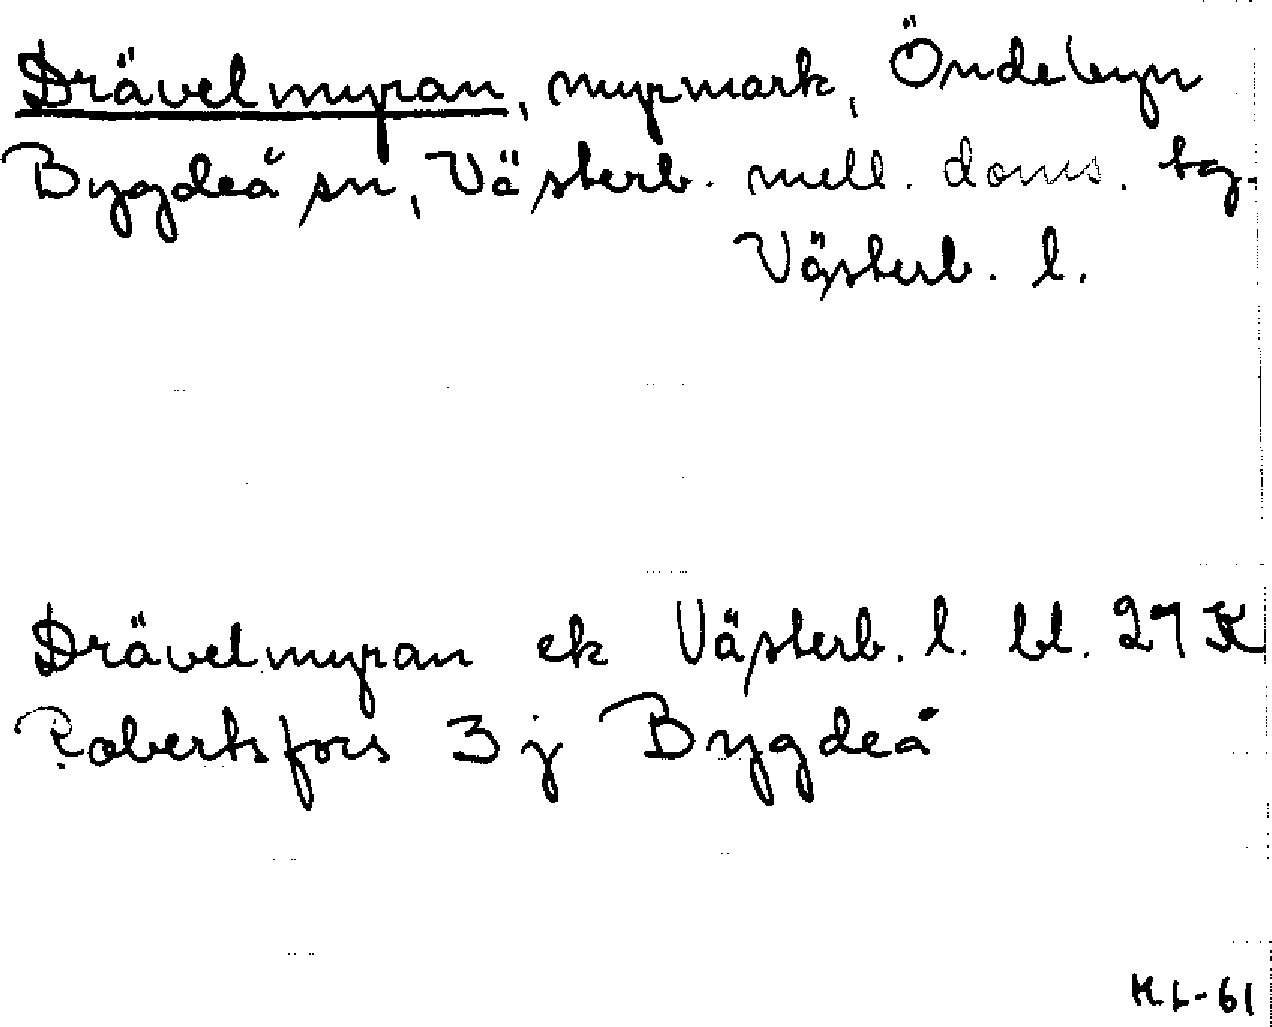 Drävelmyran, myrmark, Öndebyn
Bygdeå sn, Västerb. mell. doms. tg.
Västerb. l.
Drävelmyran ek Västerb. l. bl. 27 K
Robertsfors 3 j Bygdeå
HL-61